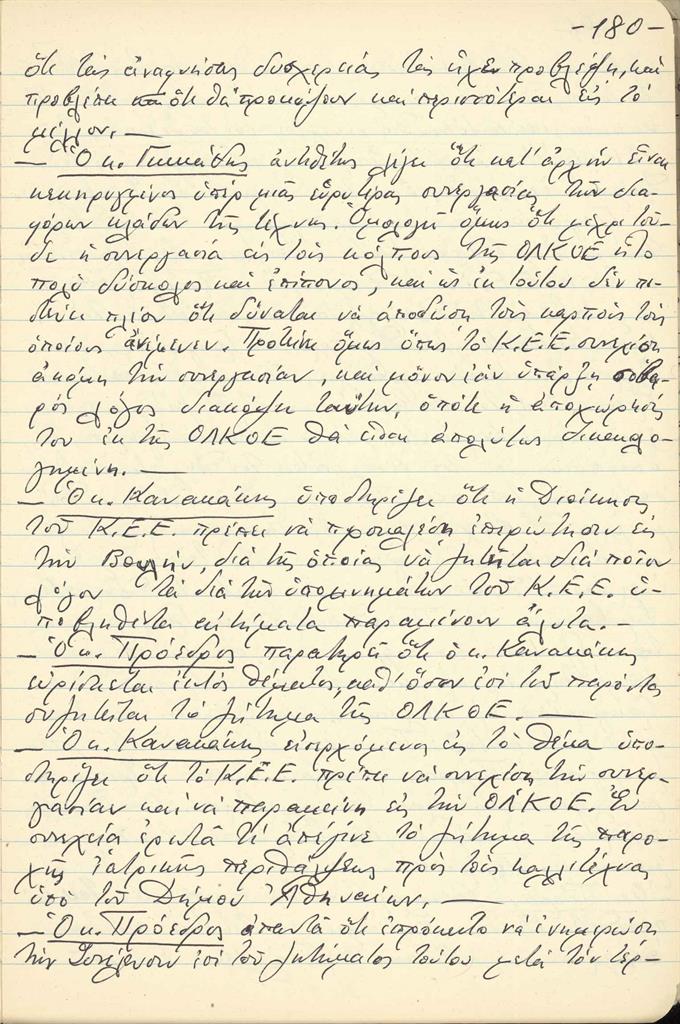 -180-
ὅτι τὰς ἀναφυείσας δυσχερείας τὰς εἶχεν προβλέψῃ, καὶ
προβλέπει ὅτι θὰ προκύψουν καὶ περισσότεραι εἰς τὸ
μέλλον. —
— Ὁ κ. ἀντιθέτως λέγει ὅτι κατ' ἀρχὴν εἶναι
κεκηρυγμένος ὑπὲρ μιᾶς εὐρυτέρας συνεργασίας τῶν δια-
φόρων κλάδων τῆς τέχνης. Ὁμολογεῖ ὅμως ὅτι μέχρι τοῦ-
δε ἡ συνεργασία εἰς τοὺς κόλπους τῆς ΟΛΚΟΕ ἦτο
πολὺ δύσκολος καὶ ἐπίπονος, καὶ ὡς ἐκ τούτου δὲν πι-
στεύει πλέον ὅτι δύναται νὰ ἀποδώσῃ τοὺς καρποὺς τοὺς
ὁποίους ἀνέμενεν. Προτείνει ὅμως ὅπως τὸ Κ.Ε.Ε. συνεχίσῃ
ἀκόμη τὴν συνεργασίαν, καὶ μόνον ἐὰν ὑπάρξῃ σοβα-
ρὸς λόγος διακόψει ταύτην, ὁπότε ἡ ἀποχώρησίς
του ἐκ τῆς ΟΛΚΟΕ θὰ εἶναι ἀπολύτως δικαιολο-
γημένη. —
— Ὁ κ. Κανακάκης ὑποστηρίζει ὅτι ἡ Διοίκησις
τοῦ Κ.Ε.Ε. πρέπει νὰ προκαλέσῃ ἐπερώτησιν εἰς
τὴν Βουλήν, διὰ τῆς ὁποίας νὰ ζητεῖται διὰ ποῖον
λόγον τὰ διὰ τῶν ὑπομνημάτων τοῦ Κ.Ε.Ε. ὑ-
ποβληθέντα αἰτήματα παραμένουν ἄλυτα. —
— Ὁ κ. Πρόεδρος παρατηρεῖ ὅτι ὁ κ. Κανακάκης
εὑρίσκεται ἐκτὸς θέματος, καθ' ὅσον ἐπὶ τοῦ παρόντος
συζητεῖται τὸ ζήτημα τῆς ΟΛΚΟΕ. —
— Ὁ κ. Κανακάκης εἰσερχόμενος εἰς τὸ θέμα ὑπο-
στηρίζει ὅτι τὸ Κ.Ε.Ε. πρέπει νὰ συνεχίσῃ τὴν συνερ-
γασίαν καὶ νὰ παραμείνῃ εἰς τὴν ΟΛΚΟΕ. Ἐν
συνεχείᾳ ἐρωτᾶ τί ἀπέγινε τὸ ζήτημα τῆς παρο-
χῆς ἰατρικῆς περιθάλψεως πρὸς τοὺς καλλιτέχνας
ὑπὸ τοῦ Δήμου Ἀθηναίων. —
— Ὁ κ. Πρόεδρος ἀπαντᾶ ὅτι ἐπρόκειτο νὰ ἐνημερώσῃ
τὴν Συνέλευσιν ἐπὶ τοῦ ζητήματος τούτου μετὰ τὸν τερ-